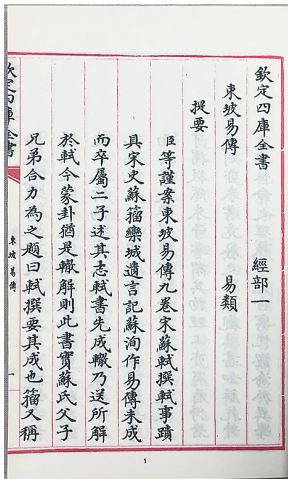 欽定四庫全書　　經部一
東坡易傳　　　　易類
提要
臣等謹案東坡易傳九卷宋蘇軾撰軾事蹟
具宋史蘇籀欒城遺言記蘇洵作易傳未成
而卒屬二子述其志軾書先成轍乃送所解
於軾今蒙卦猶是轍解則此書實蘇氏父子
兄弟合力為之題曰軾撰要其成也籀又稱
欽定四庫全書
東坡易傳
一
1